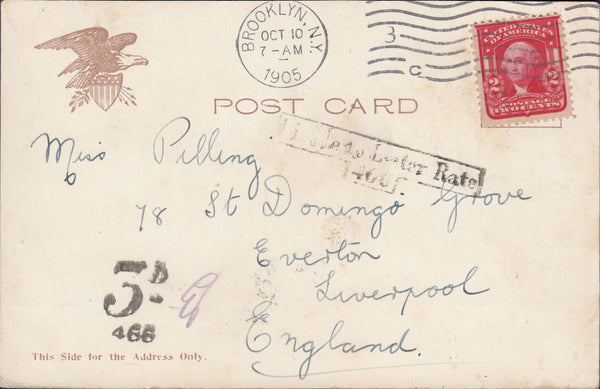 BROOKLYN, N.Y.
OCT 10
7-AM
1905
3
C
UNITED STATES
OF AMERICA
2 2
POSTAGE
TWO CENTS
POST CARD
Liable to Letter Rate
466
Miss Pilling
78 St Domingo Grove
Everton
Liverpool
England.
3D
466
This Side for the Address Only.